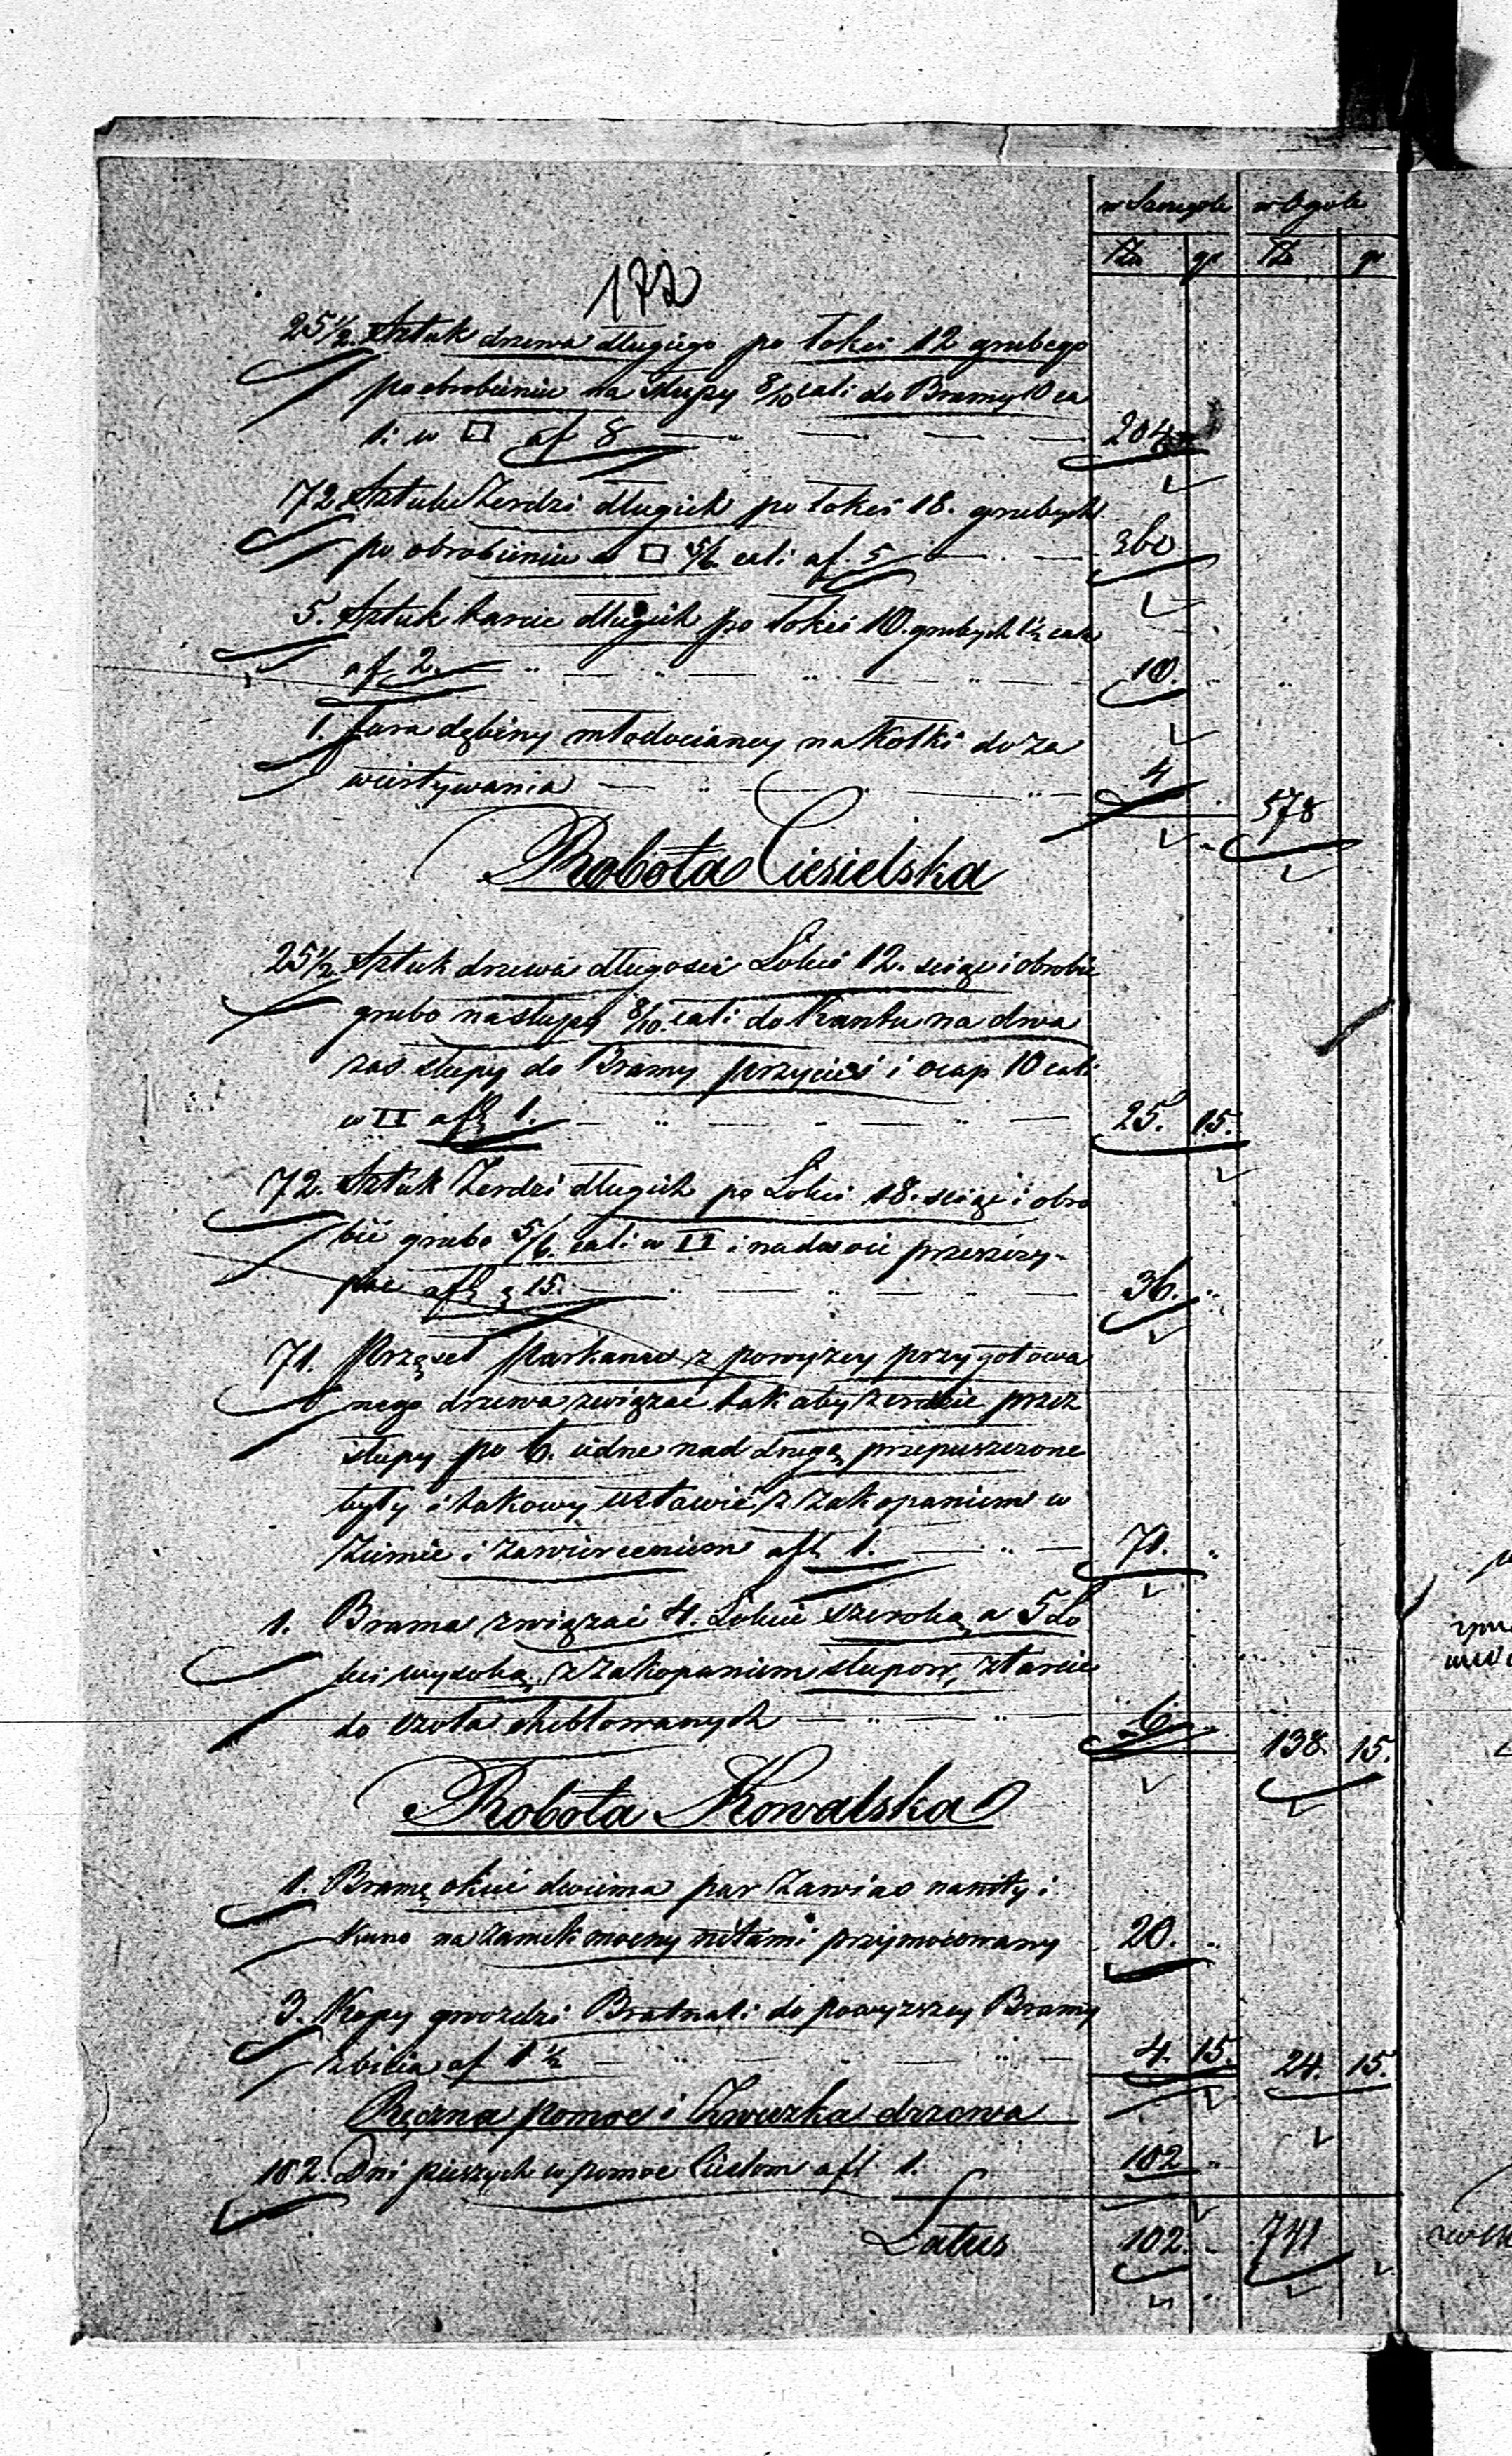 w Szczególe w Ogóle
Złp gr Złp gr
172
25 1/2. Sztuk drzewa długiego po łokci 12 grubego
po obrobieniu na słupy 8/10 cali do Bramy 10 ca
li w □ af 8 204
72 Sztuk Żerdzi długich po łokci 18. grubych
po obrobieniu w □ 5/6. cali af. 5 360
5. Sztuk tarcic długich po łokci 10. grubych 1 1/2 cala
af 2. 10.
1. fura dębiny młodocianey na kołki do za
wiertywania 4 578
Robota Ciesielska
25 1/2 Sztuk drzewa długości Łokci 12. ściąć i obrobić
grubo na słupy 8/10. cali do Kantu na dwa
zaś słupy do Bramy przycieś i ocap 10 cali
w II afl 1. 25. 15.
72. Sztuk Żerdzi długich po Łokci 18. ściąć i obro
bić grubo 5/6. cali w II i na dwoie przerzy-
nać afl g 15. 36.
71. Przęseł Parkanu z powyżey przygotowa
nego drzewa związać tak aby żerdzie przez
słupy po 6. iedne nad drugą przepuszczone
były i takowy ustawić z zakopaniem w
ziemie i zawierceniem afl 1. 71.
1. Brama związać 4. Łokcie szeroką a 5 Ło
kci wysoką z zakopaniem słupow, z tarcic
do czoła cheblowanych 6. 138. 15.
Robota Kowalska
1. Bramę okuć dwiema par Zawias na nity i
Kuno na zamek mocny nitami przymocowany 20.
3. Kopy gwozdzi Bratnali do powyzszey Bramy
zbicia af 1 1/2 4. 15. 24. 15.
Ręczna pomoc i Zwózka drzewa
102. Dni pieszych w pomoc Cieslom afl 1. 102
Latus 102. 741